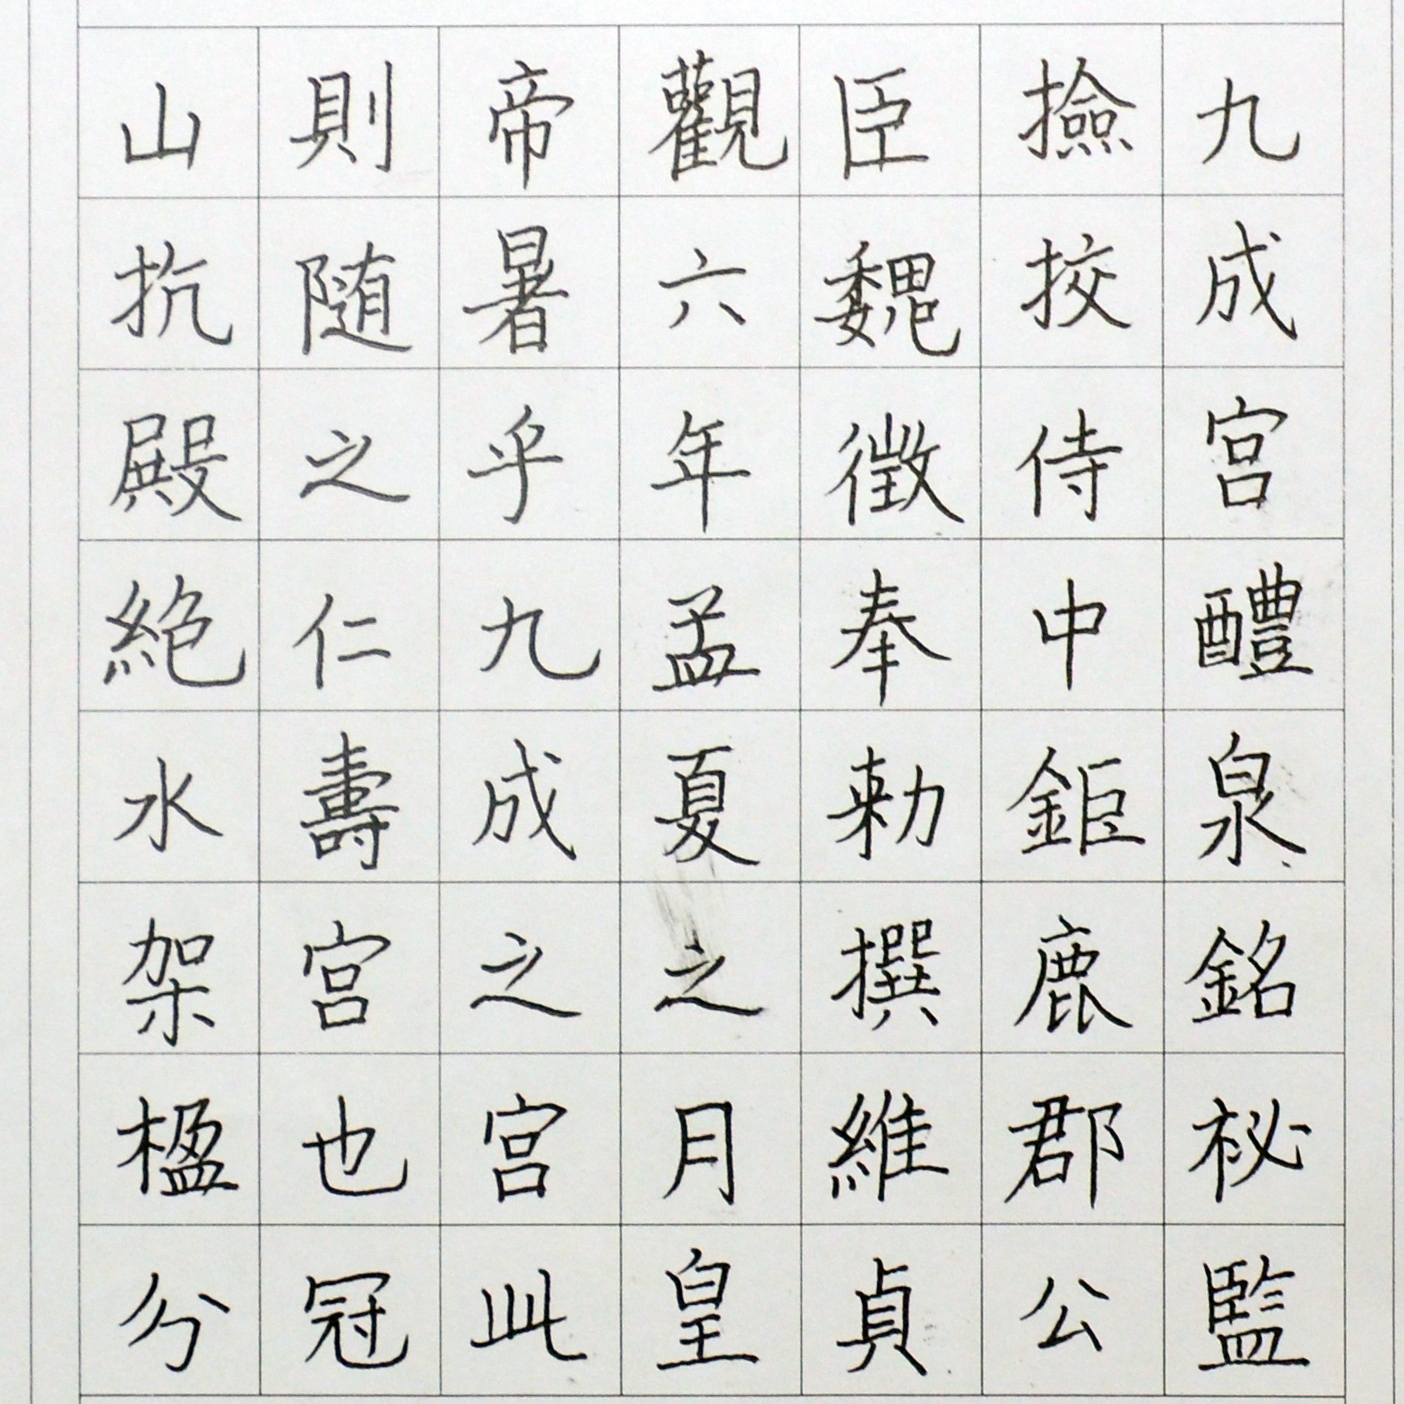 九成宮醴泉銘秘監
撿挍侍中鉅鹿郡公
臣魏徵奉勅撰維貞
觀六年孟夏之月皇
帝暑乎九成之宮此
則随之仁壽宮也冠
山抗殿絶水架楹分